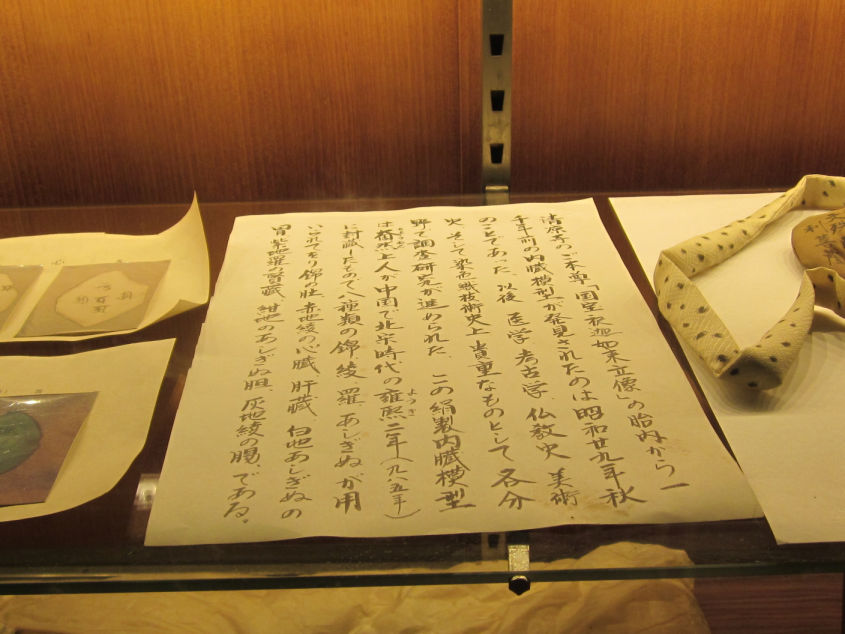 清凉寺のご本尊「国宝釈迦如来立像」の胎内から一
千年前の内臓模型が発見されたのは昭和廿九年秋
のことであった。以後 医学 考古学 仏教史 美術
史 そして染織技術史上 貴重なものとして 各分
野で調査研究が進められた。この絹製内臓模型
は奝然上人が中国で北宋時代の雍熙二年(九八五年)
ようき
に封臓したもので、八種類の錦 綾 羅 あしぎぬが用
いられており 錦の肚、赤地綾の心臓、肝臓、白地あしぎぬの
胃、紫地羅の腎臓、紺地のあしぎぬ胆、灰地綾の腸、である。